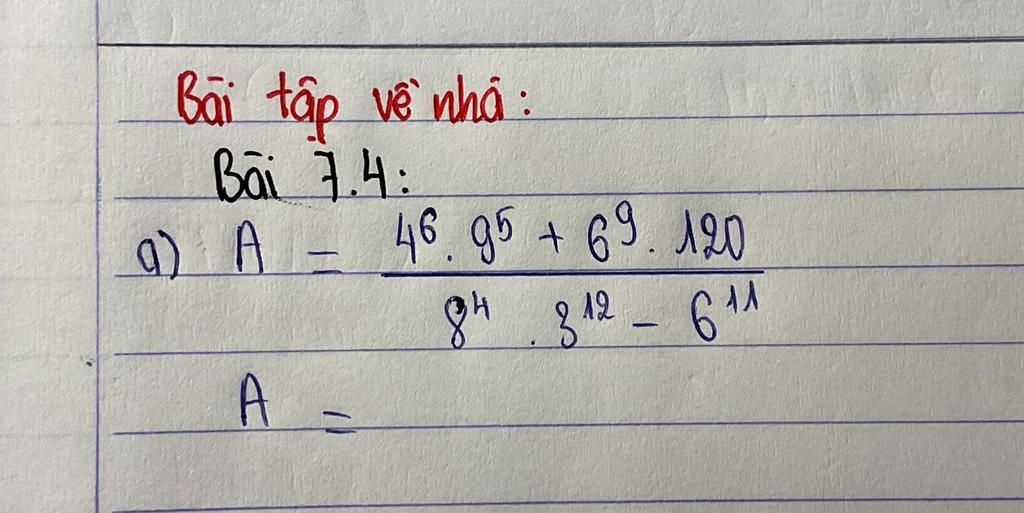 Bài tập về nhà:
Bài 7.4:
a) A = \frac{4^6 . 9^5 + 6^9 . 120}{8^4 . 3^{12} - 6^{11}}
A =